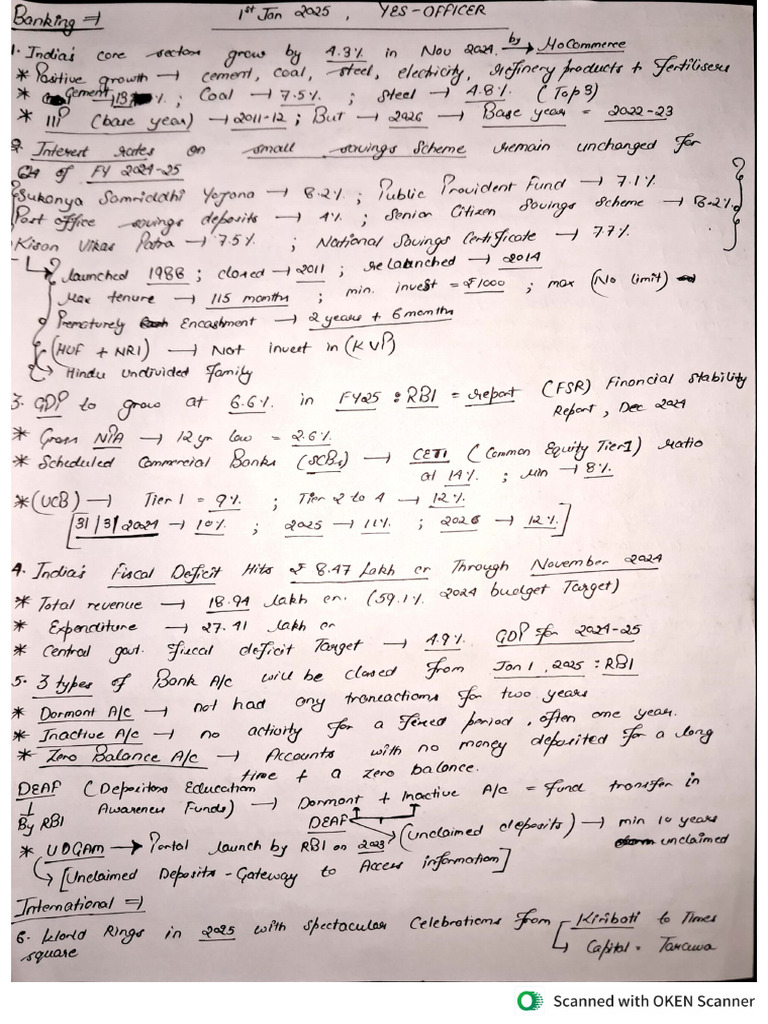 Banking ⇒ 1st Jan 2025, YES-OFFICER
1. India's core sectors grow by 4.3% in Nov 2024. by → MoCommerce
* Positive growth → cement, coal, steel, elechicity, refinery products + Fertilisers
* Cement → 13%; Coal → 7.5%; Steel → 4.8% (Top 3)
* IIP (base year) → 2011-12; But → 2026 → Base year = 2022-23
2. Interest rates on small savings Scheme remain unchanged for
Q4 of FY 2024-25
Sukanya Samriddhi Yojana → 8.2%; Public Provident Fund → 7.1%
Post office savings deposits → 4%; Senior Citizen Savings Scheme → 8.2%
Kisan Vikas Patra → 7.5%; National Savings Certificate → 7.7%
launched 1988; closed → 2011; relaunched → 2014
Max tenure → 115 months; min. invest = ₹1000; max (No limit)
Prematurely Encashment → 2 years + 6 months
(HUF + NRI) → Not invest in (KVP)
→ Hindu undivided Family
3. GDP to grow at 6.6% in FY25 : RBI = report (FSR) Financial Stability
Report, Dec 2024
* Gross NPA → 12 yr low = 2.6%
* Scheduled Commercial Banks (SCBs) → CET1 (Common Equity Tier 1) ratio
at 14%; Min → 8%
* (UCB) → Tier 1 = 9%; Tier 2 to 4 → 12%
[31/3/2024 → 10%; 2025 → 11%; 2026 → 12%]
4. India's Fiscal Deficit Hits ₹ 8.47 Lakh cr Through November 2024
* Total revenue → 18.94 lakh cr. (59.1% 2024 budget Target)
* Expenditure → 27.41 lakh cr
* Central govt. Fiscal deficit Target → 4.9% GDP for 2024-25
5. 3 types of Bank A/c will be closed From Jan 1, 2025 : RBI
* Dormant A/c → not had any transactions for two years
* Inactive A/c → no activity for a fixed period, often one year.
* Zero Balance A/c → Accounts with no money deposited for a long
time + a zero balance.
DEAF (Depositors Education
Awareness Funds) → Dormant + Inactive A/c = fund transfer in
By RBI DEAF (unclaimed deposits) → min 10 years
unclaimed
* UDGAM → Portal launch by RBI on 2023
→ [Unclaimed Deposits - Gateway to Access information]
International ⇒
6. World Rings in 2025 with Spectacular Celebrations From Kiribati to Times
square → Capital = Tarawa
Scanned with OKEN Scanner